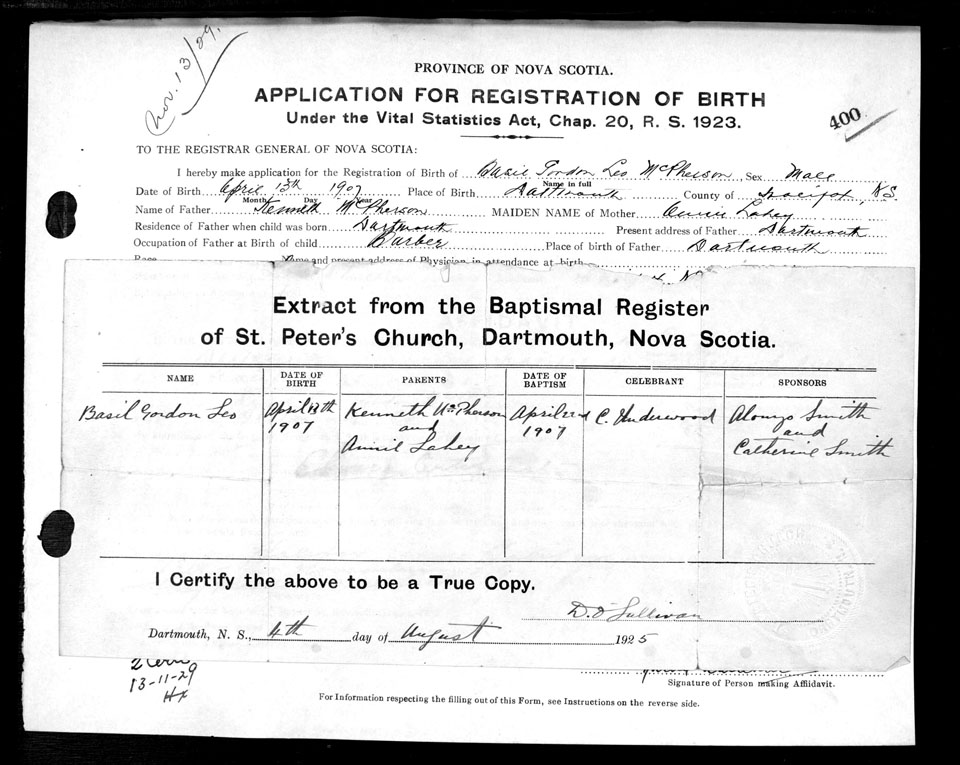 Nov. 13/29.
PROVINCE OF NOVA SCOTIA.
APPLICATION FOR REGISTRATION OF BIRTH
Under the Vital Statistics Act, Chap. 20, R. S. 1923.
400
TO THE REGISTRAR GENERAL OF NOVA SCOTIA:
I hereby make application for the Registration of Birth of Basil Gordon Leo McPherson Sex Male
Name in full
Date of Birth April 13th 1907 Place of Birth Dartmouth County of N.S.
Month Day Year
Name of Father Kenneth McPherson MAIDEN NAME of Mother Annie Lahey
Residence of Father when child was born Dartmouth Present address of Father Dartmouth
Occupation of Father at Birth of child Barber Place of birth of Father Dartmouth
Race Name and present address of Physician in attendance at birth
Extract from the Baptismal Register
of St. Peter's Church, Dartmouth, Nova Scotia.
NAME DATE OF BIRTH PARENTS DATE OF BAPTISM CELEBRANT SPONSORS
Basil Gordon Leo April 13th Kenneth McPherson April 22nd C. Underwood Alonzo Smith
1907 and 1907 and
Annie Lahey Catherine Smith
I Certify the above to be a True Copy.
D. O'Sullivan
Dartmouth, N. S., 4th day of August 1925
13-11-29
Signature of Person making Affidavit.
For Information respecting the filling out of this Form, see Instructions on the reverse side.